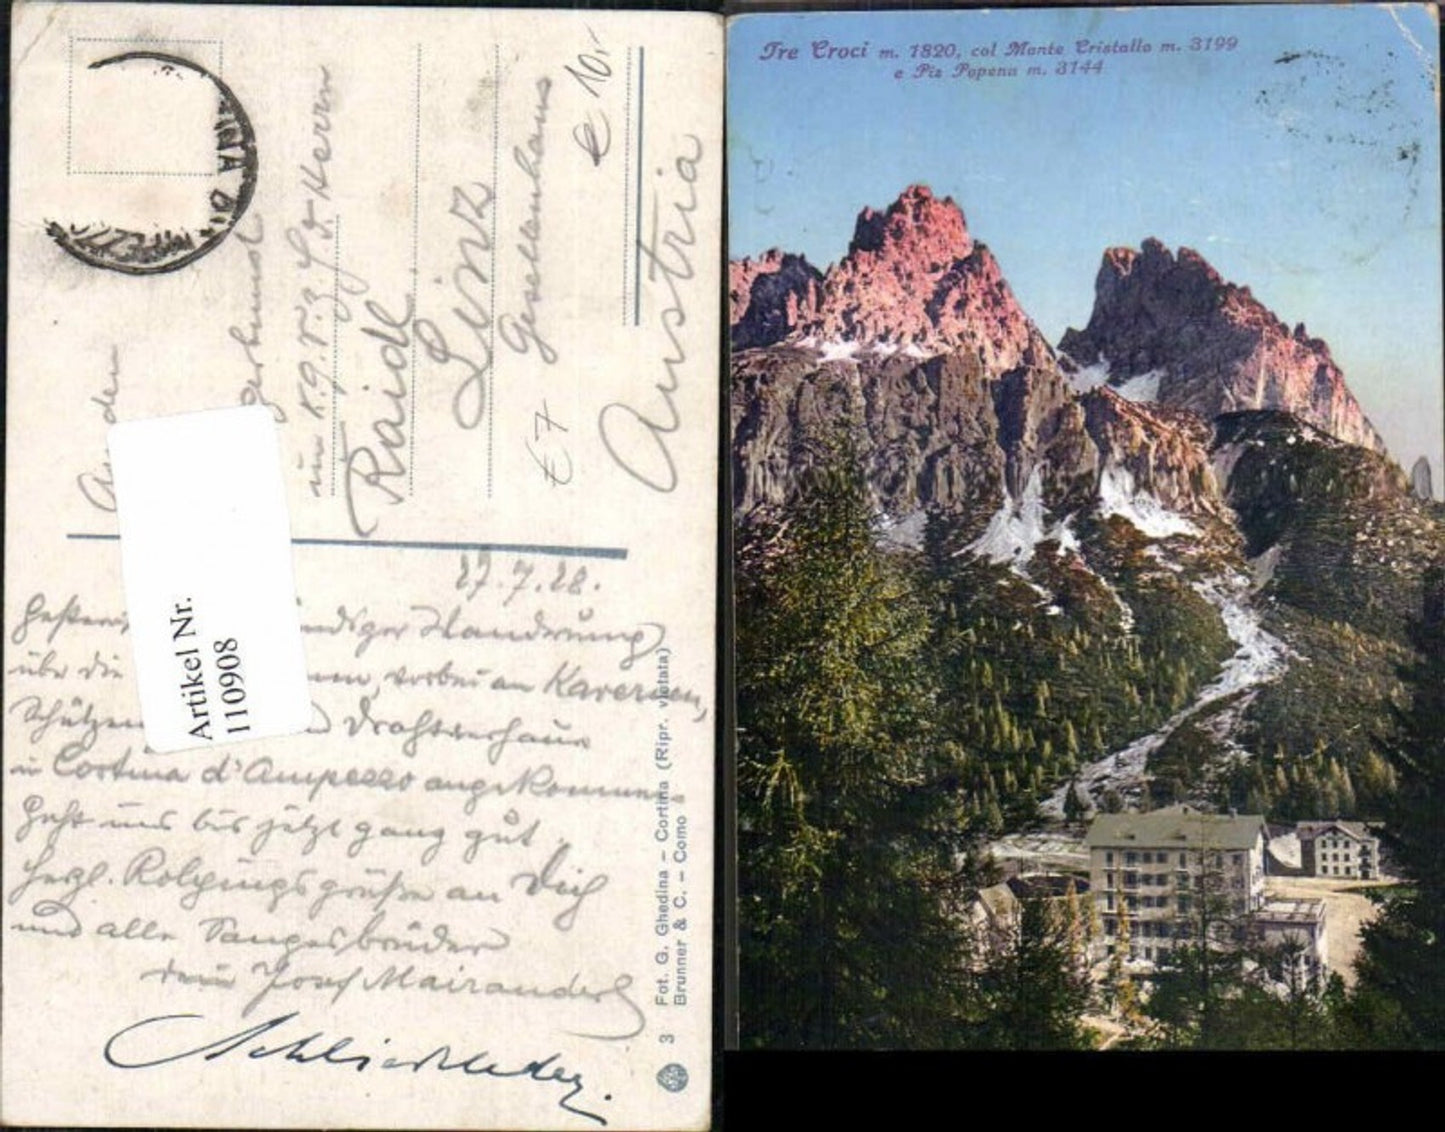 Tre Croci m. 1820, col Monte Cristallo m. 3199
e Piz Popena m. 3144
An den
in K.G.V. z. H. d. Herrn
Raidl
Linz
Gesellenhaus
Austria
€ 10,-
€ 7
Artikel Nr.
110908
27.7.28.
Wanderung
über die vorbei an Kavernen,
Schützen Drahtverhaue
in Cortina d'Ampezzo angekommen.
Geht uns bis jetzt ganz gut.
Herzl. Kolpingsgrüße an Dich
und alle Sangesbrüder
Dein Josef Mairanderl
Fot. G. Ghedina – Cortina (Ripr. vietata)
Brunner & C. – Como
3